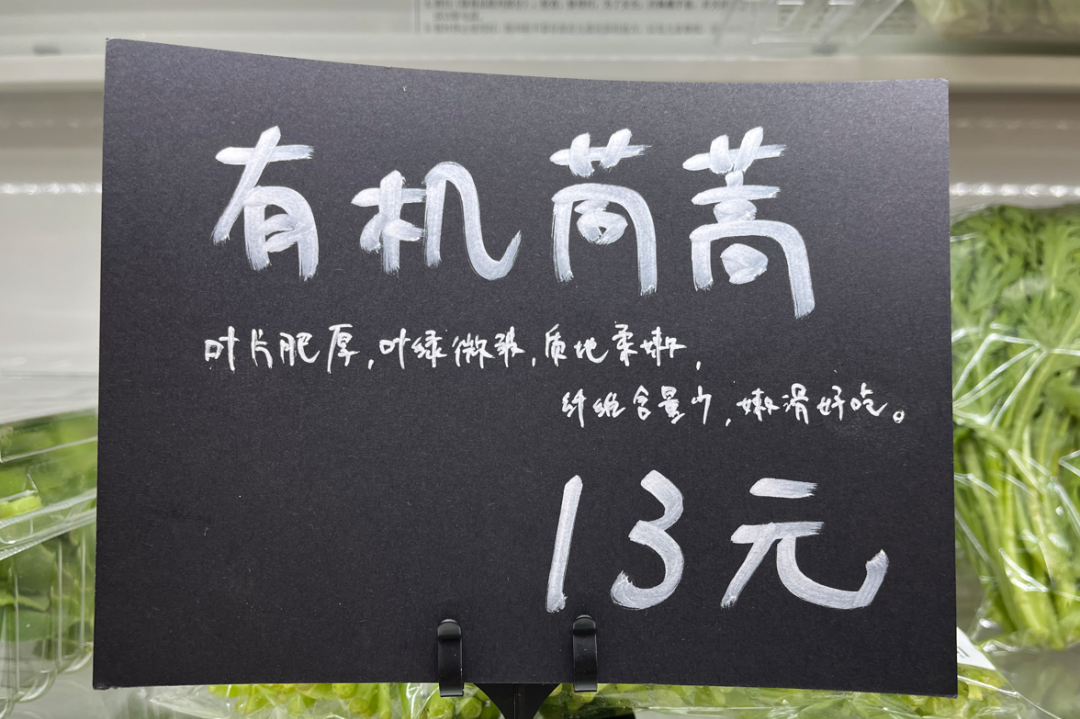 有机茼蒿
叶片肥厚,叶绿微皱,质地柔嫩,
纤维含量少,嫩滑好吃。
13元